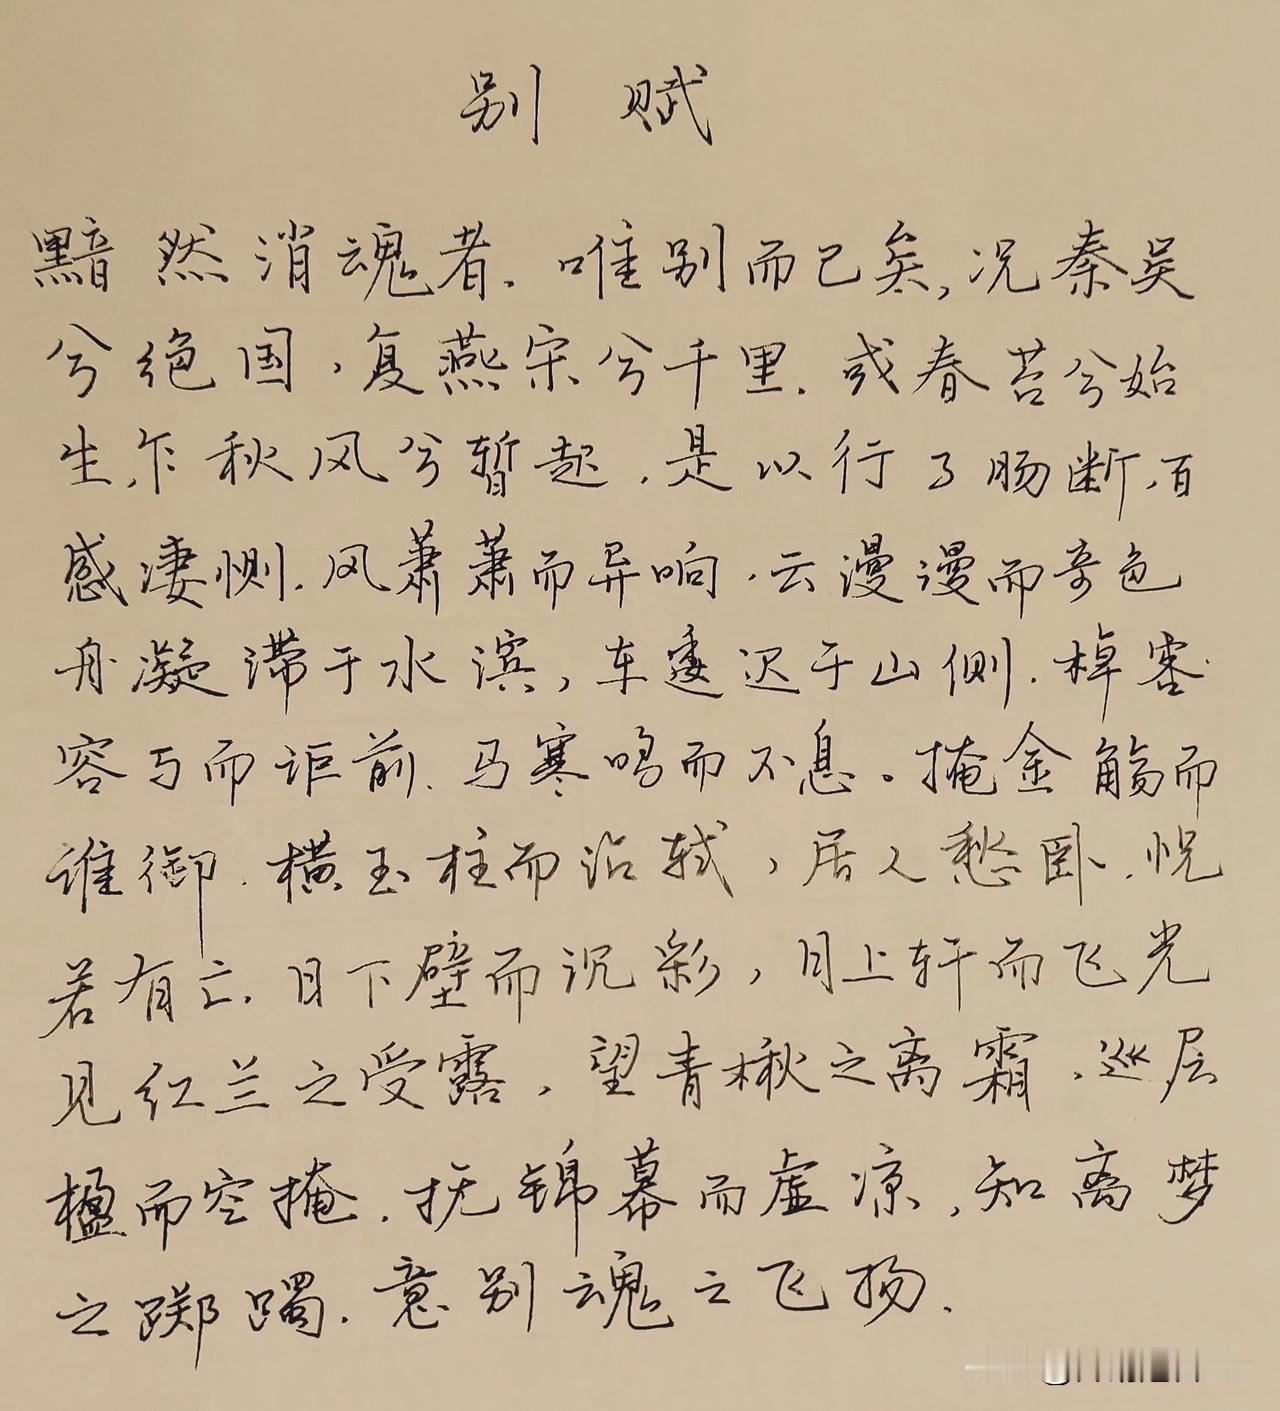 别赋
黯然消魂者.唯别而已矣,况秦吴
兮绝国,复燕宋兮千里.或春苔兮始
生,乍秋风兮暂起,是以行子肠断,百
感凄恻.风萧萧而异响,云漫漫而奇色
舟凝滞于水滨,车逶迟于山侧.棹容
容与而讵前.马寒鸣而不息。掩金觞而
谁御.横玉柱而沾轼,居人愁卧.怳
若有亡.日下壁而沉彩,月上轩而飞光
见红兰之受露,望青楸之离霜,巡层
楹而空掩.抚锦幕而虚凉,知离梦
之踯躅.意别魂之飞扬.